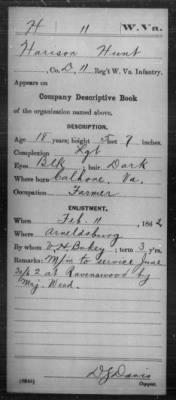 H 11 W. Va.
Harison Hunt
, Co. D, 11 Reg't W. Va. Infantry.
Appears on
Company Descriptive Book
of the organization named above.
DESCRIPTION.
Age 18 years; height 5 feet 7 inches.
Complexion Lgt
Eyes Blk ; hair Dark
Where born Calhone, Va.
Occupation Farmer
ENLISTMENT.
When Feb. 11 , 1862
Where Arnoldsburg
By whom ; term 3 y'rs.
Remarks: M/in to service June
2/62 at Ravenswood by
Maj. Weed.
D J Davis
Copyist.